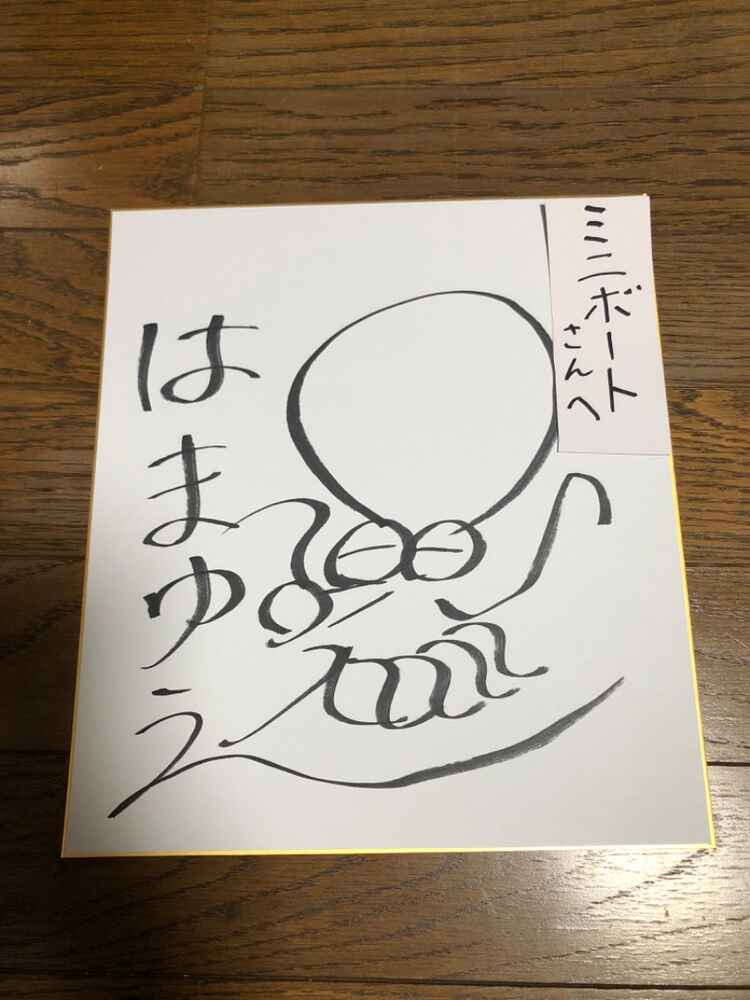 ミニボート
さんへ
はまゆう